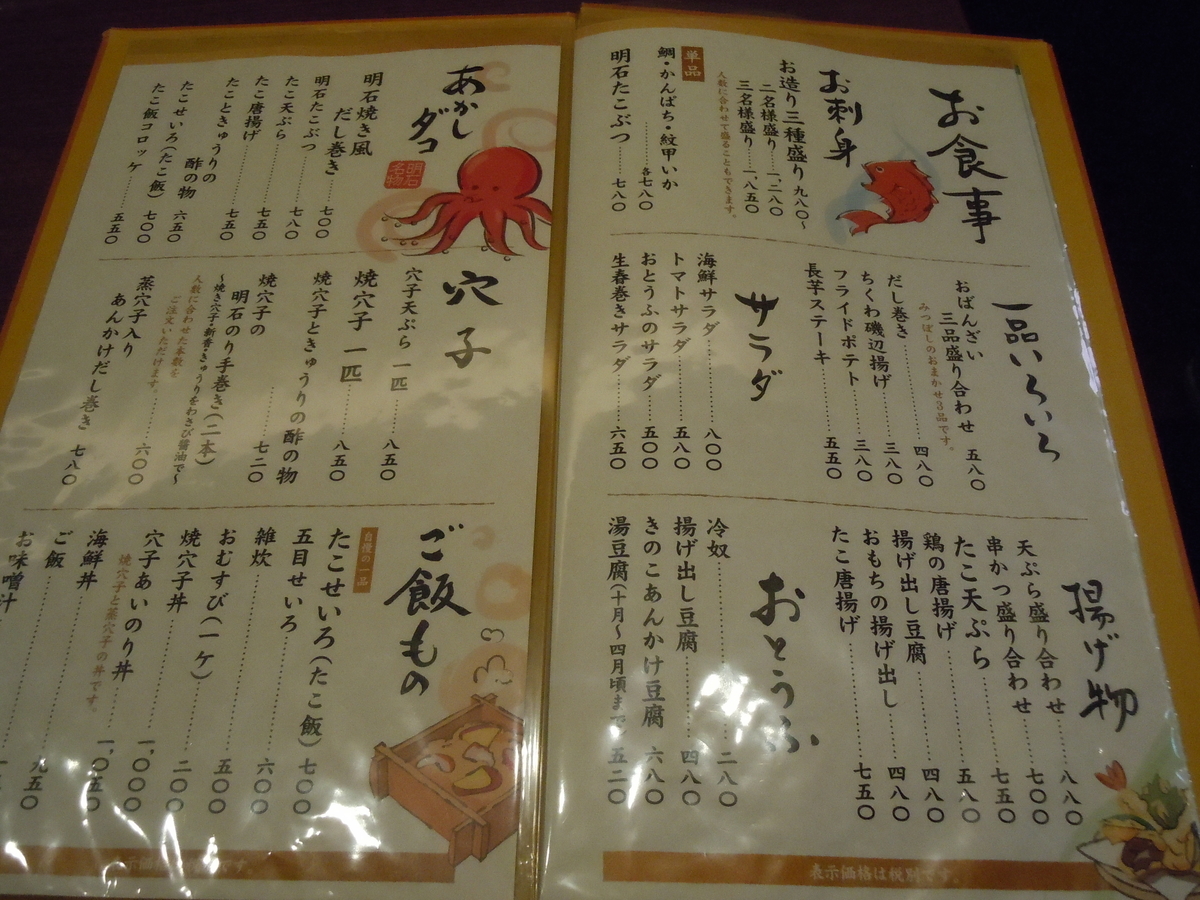 お食事
お刺身
お造り三種盛り 九八〇〜
二名様盛り 一,二八〇
三名様盛り 一,八五〇
人数に合わせて盛ることもできます。
単品
鯛・かんぱち・紋甲いか
各七八〇
明石たこぶつ 七八〇
一品いろいろ
おばんざい
三品盛り合わせ 五八〇
みつぼしのおまかせ3品です。
だし巻き 四八〇
ちくわ磯辺揚げ 三八〇
フライドポテト 三八〇
長芋ステーキ 五五〇
サラダ
海鮮サラダ 八〇〇
トマトサラダ 五八〇
おとうふのサラダ 五〇〇
生春巻きサラダ 六五〇
揚げ物
天ぷら盛り合わせ 八八〇
串かつ盛り合わせ 七〇〇
たこ天ぷら 七五〇
鶏の唐揚げ 五八〇
揚げ出し豆腐 四八〇
おもちの揚げ出し 四八〇
たこ唐揚げ 七五〇
おとうふ
冷奴 二八〇
揚げ出し豆腐 四八〇
きのこあんかけ豆腐 六八〇
湯豆腐(十月〜四月頃まで) 五二〇
表示価格は税別です。
あかしダコ
明石名物
明石焼き風
だし巻き 七〇〇
明石たこぶつ 七八〇
たこ天ぷら 七五〇
たこ唐揚げ 七五〇
たこときゅうりの
酢の物 六五〇
たこせいろ(たこ飯) 七〇〇
たこ飯コロッケ 五五〇
穴子
穴子天ぷら 一匹 八五〇
焼穴子 一匹 八五〇
焼穴子ときゅうりの酢の物
七二〇
焼穴子の
明石のり手巻き(二本)
〜焼き穴子・新香・きゅうりをわさび醤油で〜
人数に合わせた本数を
ご注文いただけます。
六〇〇
蒸穴子入り
あんかけだし巻き 七八〇
ご飯もの
自慢の一品
たこせいろ(たこ飯) 七〇〇
五目せいろ 六〇〇
雑炊 五〇〇
おむすび(一ケ) 二〇〇
焼穴子丼 一,〇〇〇
穴子あいのり丼 一,〇五〇
焼穴子と蒸穴子の丼です。
海鮮丼 九五〇
ご飯
お味噌汁
表示価格は税別です。